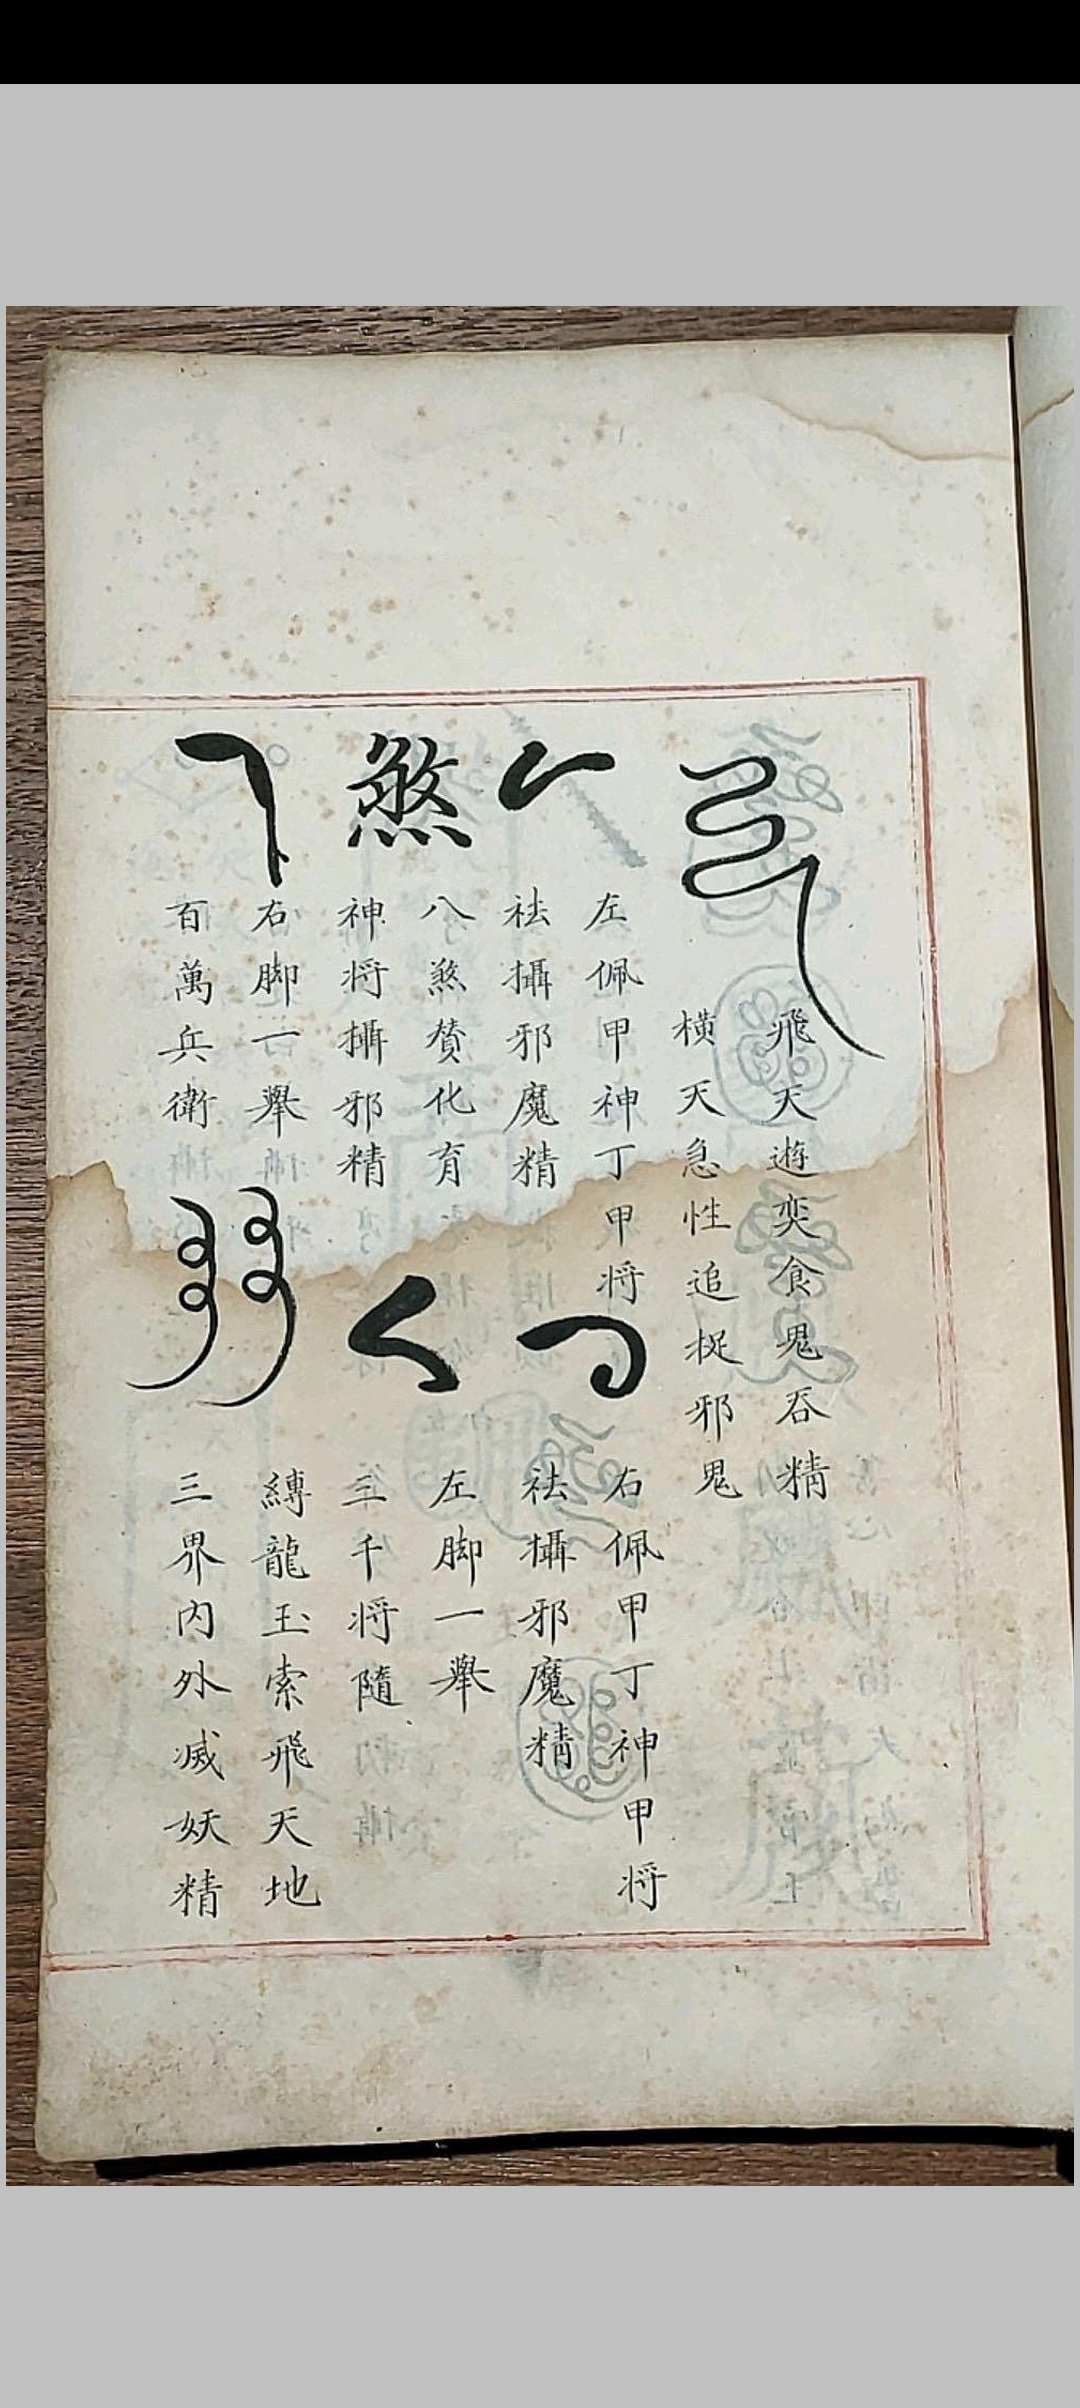 飛天遊奕食鬼吞精
橫天急性追捉邪鬼
左佩甲神丁甲将
祛攝邪魔精
煞
八煞賛化育
神将攝邪精
右脚一舉
百萬兵衛
右佩甲丁神甲将
祛攝邪魔精
左脚一舉
三千将隨
縛龍玉索飛天地
三界内外滅妖精